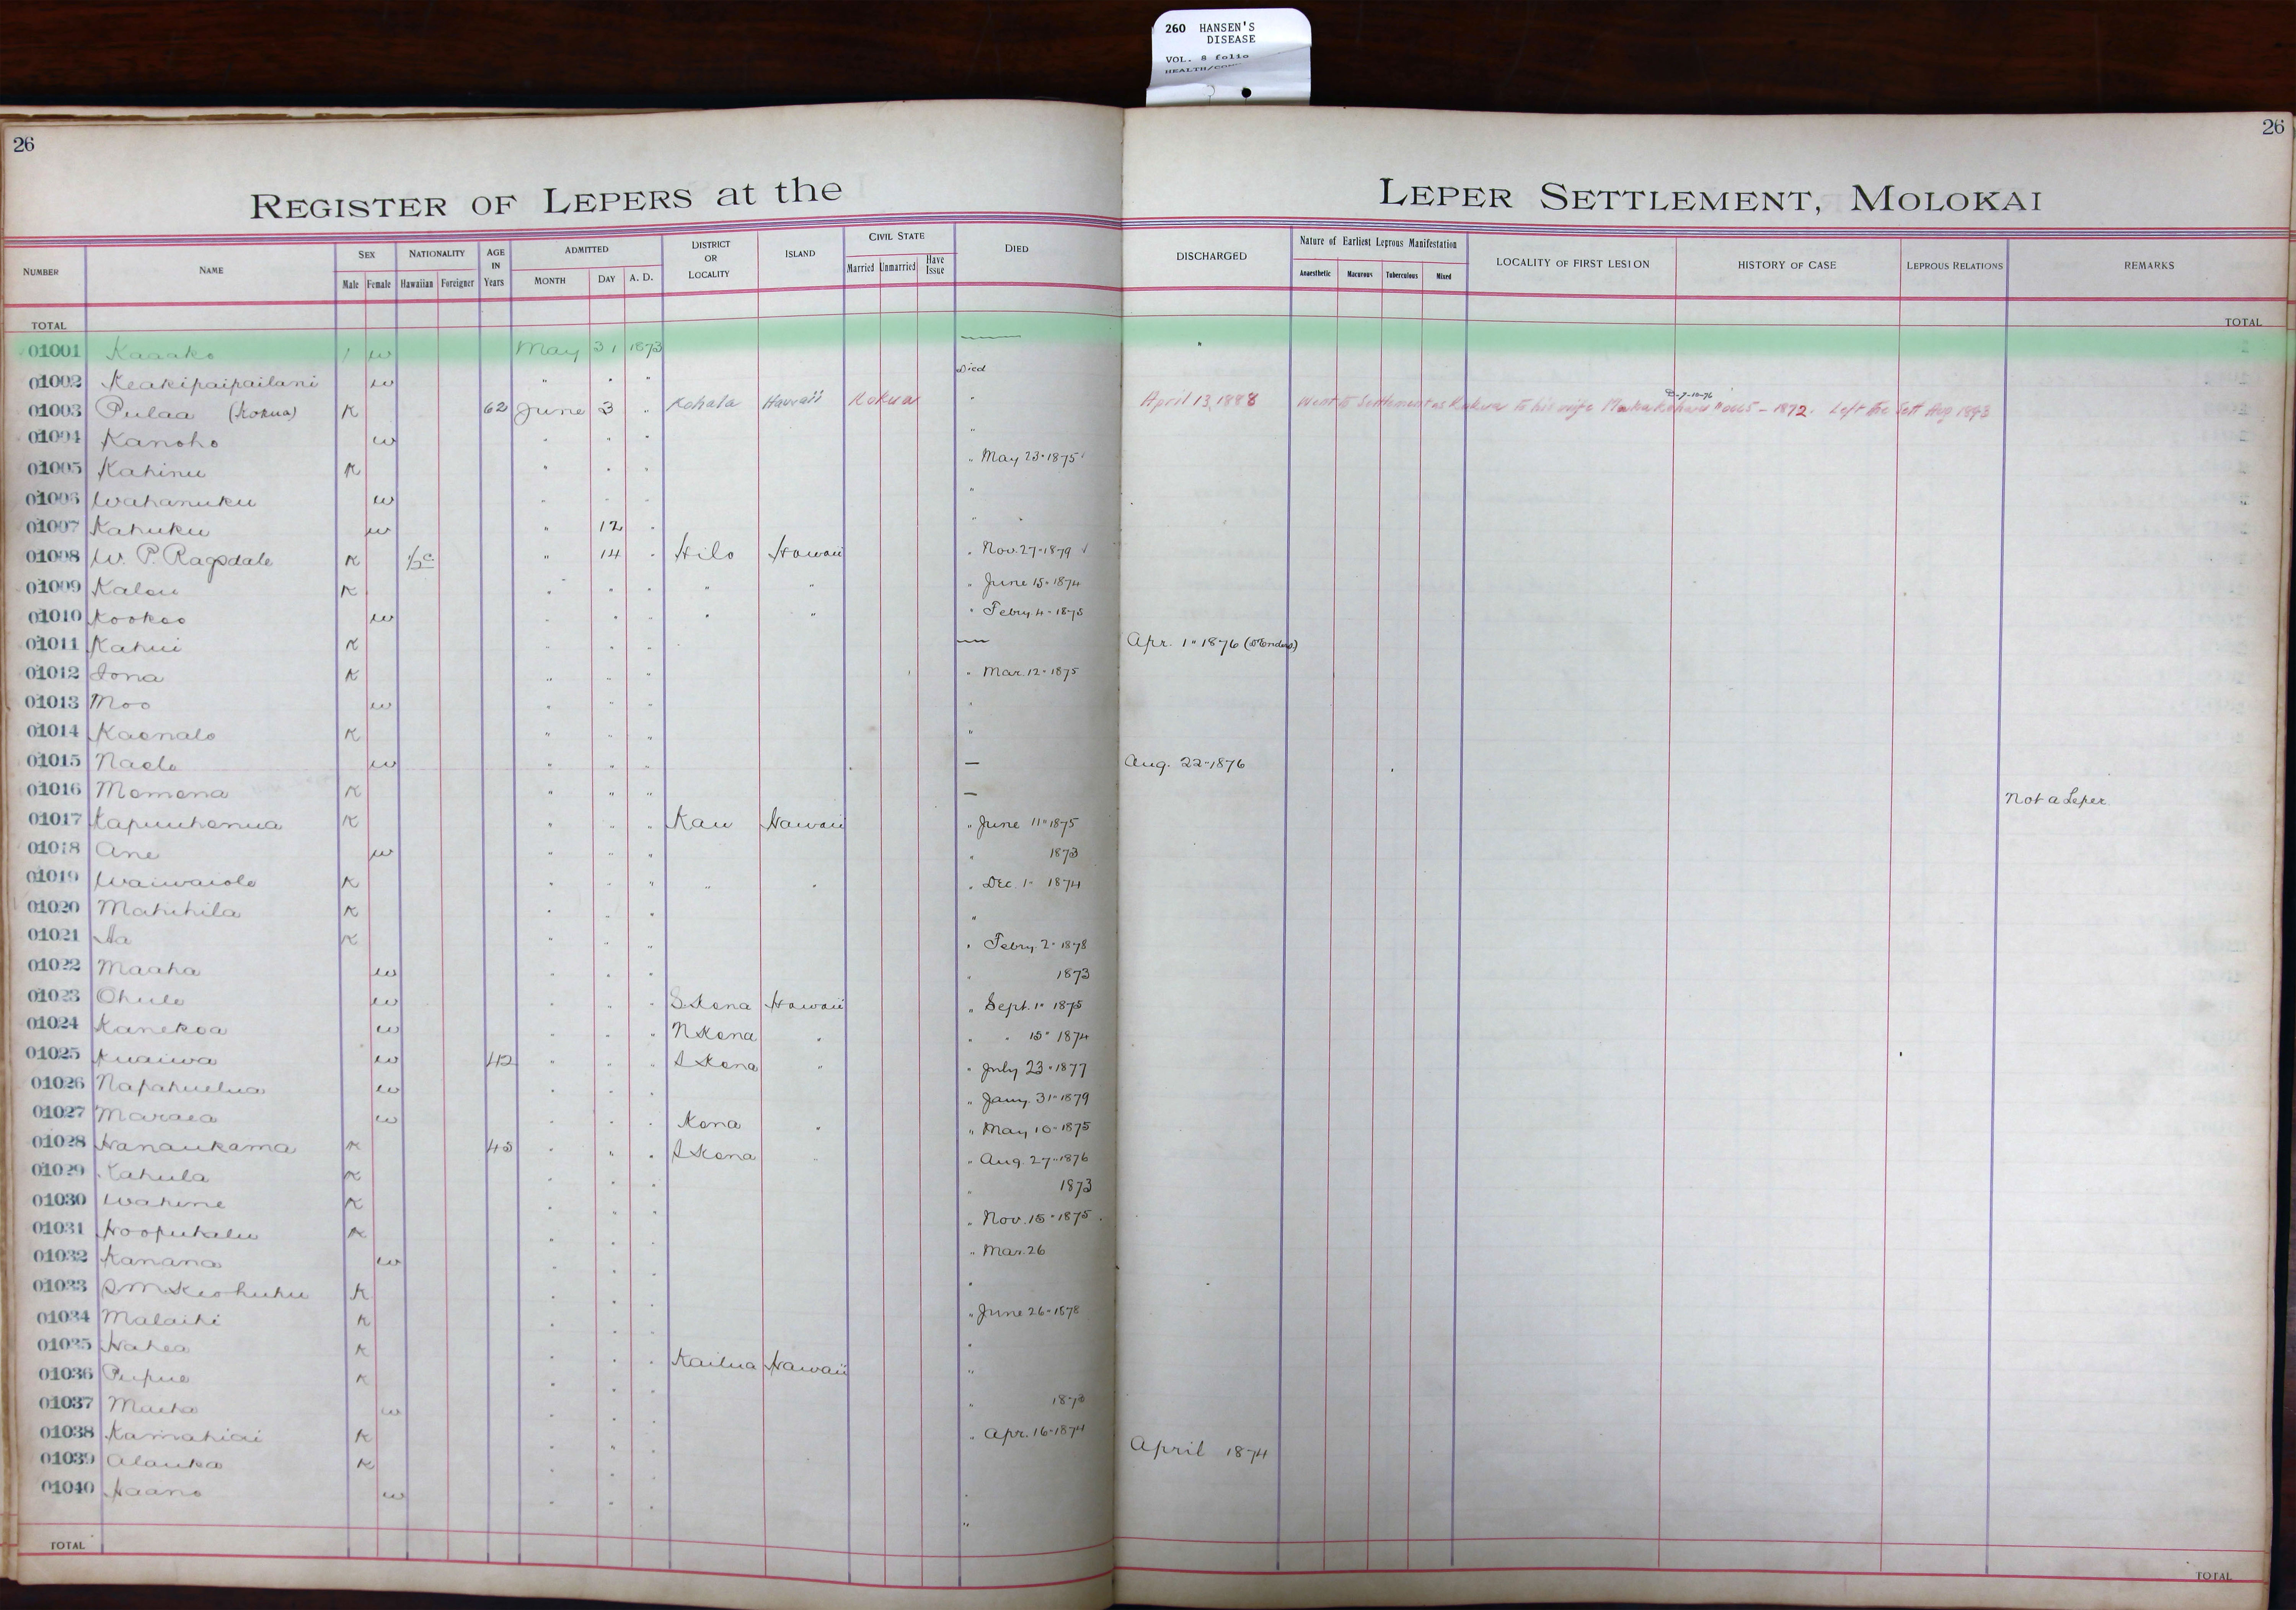 260 HANSEN'S
DISEASE
VOL. 8 folio
HEALTH/
26
26
REGISTER OF LEPERS at the LEPER SETTLEMENT, MOLOKAI
NUMBER NAME SEX Male Female NATIONALITY Hawaiian Foreigner AGE IN Years ADMITTED MONTH DAY A. D. DISTRICT OR LOCALITY ISLAND CIVIL STATE Married Unmarried Have Issue DIED DISCHARGED Nature of Earliest Leprous Manifestation Anaesthetic Macurous Tuberculous Mixed LOCALITY OF FIRST LESION HISTORY OF CASE LEPROUS RELATIONS REMARKS
TOTAL TOTAL
01001 Kaaako 1 w May 31 1873 — "
01002 Keakipaipailani w " " " Died
01003 Pulaa (Kokua) K 62 June 3 " Kohala Hawaii Kokua " April 13, 1888 Went to Settlement as Kokua to his wife - 1872. Left the Sett Aug 1873
01004 Kanoho w " " " "
01005 Kahinu K " " " " May 23 " 1875
01006 Wahanuku w " " " "
01007 Kahuku w " 12 " "
01008 W. P. Ragsdale K ½ c " 14 " Hilo Hawaii " Nov. 27 " 1879
01009 Kalou K " " " " " " June 15 " 1874
01010 Kookoo w " " " " " " Febry 4 - 1875
01011 Kahui K " " " — Apr. 1 " 1876
01012 Iona K " " " " Mar. 12 " 1875
01013 Moo w " " " "
01014 Kaonalo K " " " "
01015 Naelo w " " " — Aug. 22 - 1876
01016 Momona K " " " — Not a Leper
01017 Kapuuhonua K " " " Kau Hawaii " June 11 " 1875
01018 Ane w " " " " 1873
01019 Waiwaiole K " " " " " " Dec. 1 - 1874
01020 Mahihila K " " " "
01021 Aa K " " " " Febry. 2 " 1878
01022 Maaha w " " " " 1873
01023 Ohule w " " " S. Kona Hawaii " Sept. 1 " 1875
01024 Kanekoa w " " " N Kona " " " 15 " 1874
01025 Kuaiwa w 42 " " " S Kona " " July 23 " 1877
01026 Napahuelua w " " " " Jany. 31 " 1879
01027 Maraea w " " " Kona " " May 10 - 1875
01028 Hanaukama K 45 " " " S Kona " " Aug. 27 " 1876
01029 Kahula K " " " " 1873
01030 Wahine K " " " " Nov. 15 " 1875
01031 Hoopukalu K " " " " Mar. 26
01032 Kanana w " " " "
01033 S M Keohuhu K " " " " June 26 - 1878
01034 Malaihi K " " " "
01035 Hahea K " " " Kailua Hawaii "
01036 Pupue K " " " " 1873
01037 Maeha w " " " " Apr. 16 - 1874
01038 Kamahiai K " " " April 1874
01039 Alauka K " " " "
01040 Haano w " " " "
TOTAL TOTAL